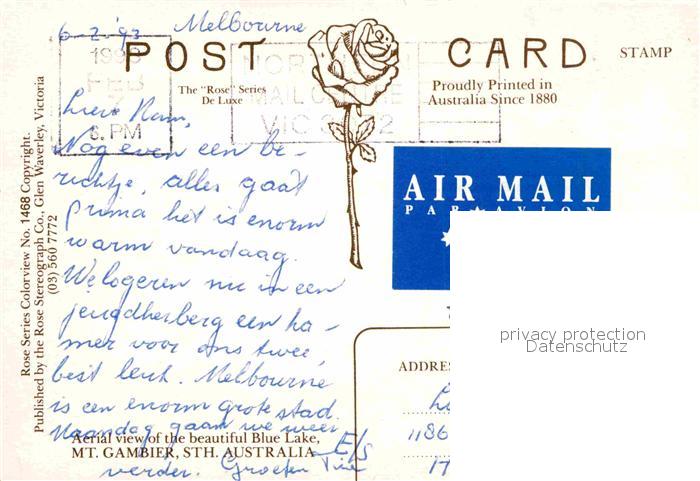 6-2-'93 Melbourne
POST CARD
STAMP
The "Rose" Series
De Luxe
Proudly Printed in
Australia Since 1880
1993
FEB
6 PM
MAIL CENTRE
VIC 3
Lieve
Nog even een be-
richtje, alles gaat
prima het is enorm
warm vandaag.
We logeren nu in een
jeugdherberg een ka-
mer voor ons twee,
best leuk. Melbourne
is een enorm grote stad.
Maandag gaan we weer
verder. Groeten
E/S
AIR MAIL
PAR AVION
privacy protection
Datenschutz
ADDRES
1186
17
Aerial view of the beautiful Blue Lake,
MT. GAMBIER, STH. AUSTRALIA
Rose Series Colorview No. 1468 Copyright.
Published by the Rose Stereograph Co., Glen Waverley, Victoria
(03) 560 7772